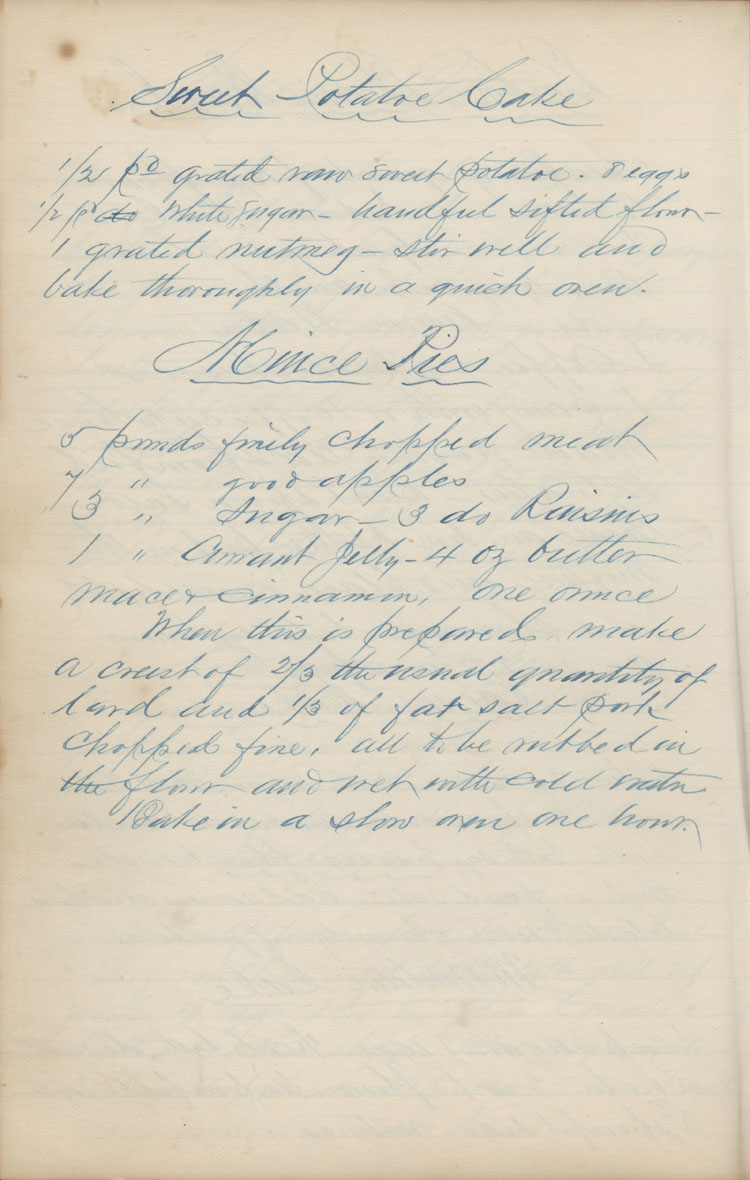 Sweet Potatoe Cake
1/2 pd grated raw sweet potatoe. 8 eggs
1/2 pd do White Sugar - handful sifted flour -
1 grated nutmeg - stir well and
bake thoroughly in a quick oven.
Mince Pies
5 pounds finely chopped meat
7 " good apples
3 " Sugar - 3 do Raisins
1 " Currant Jelly - 4 oz butter
mace & cinnamon, one ounce
When this is prepared make
a crust of 2/3 the usual quantity of
lard and 1/3 of fat salt pork
chopped fine, all to be rubbed in
the flour and wet with cold water
Bake in a slow oven one hour.